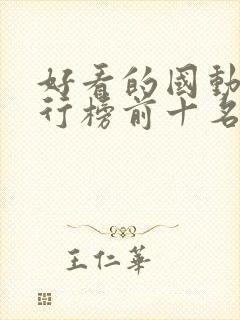 好看的國動
行榜前十名
王仁華